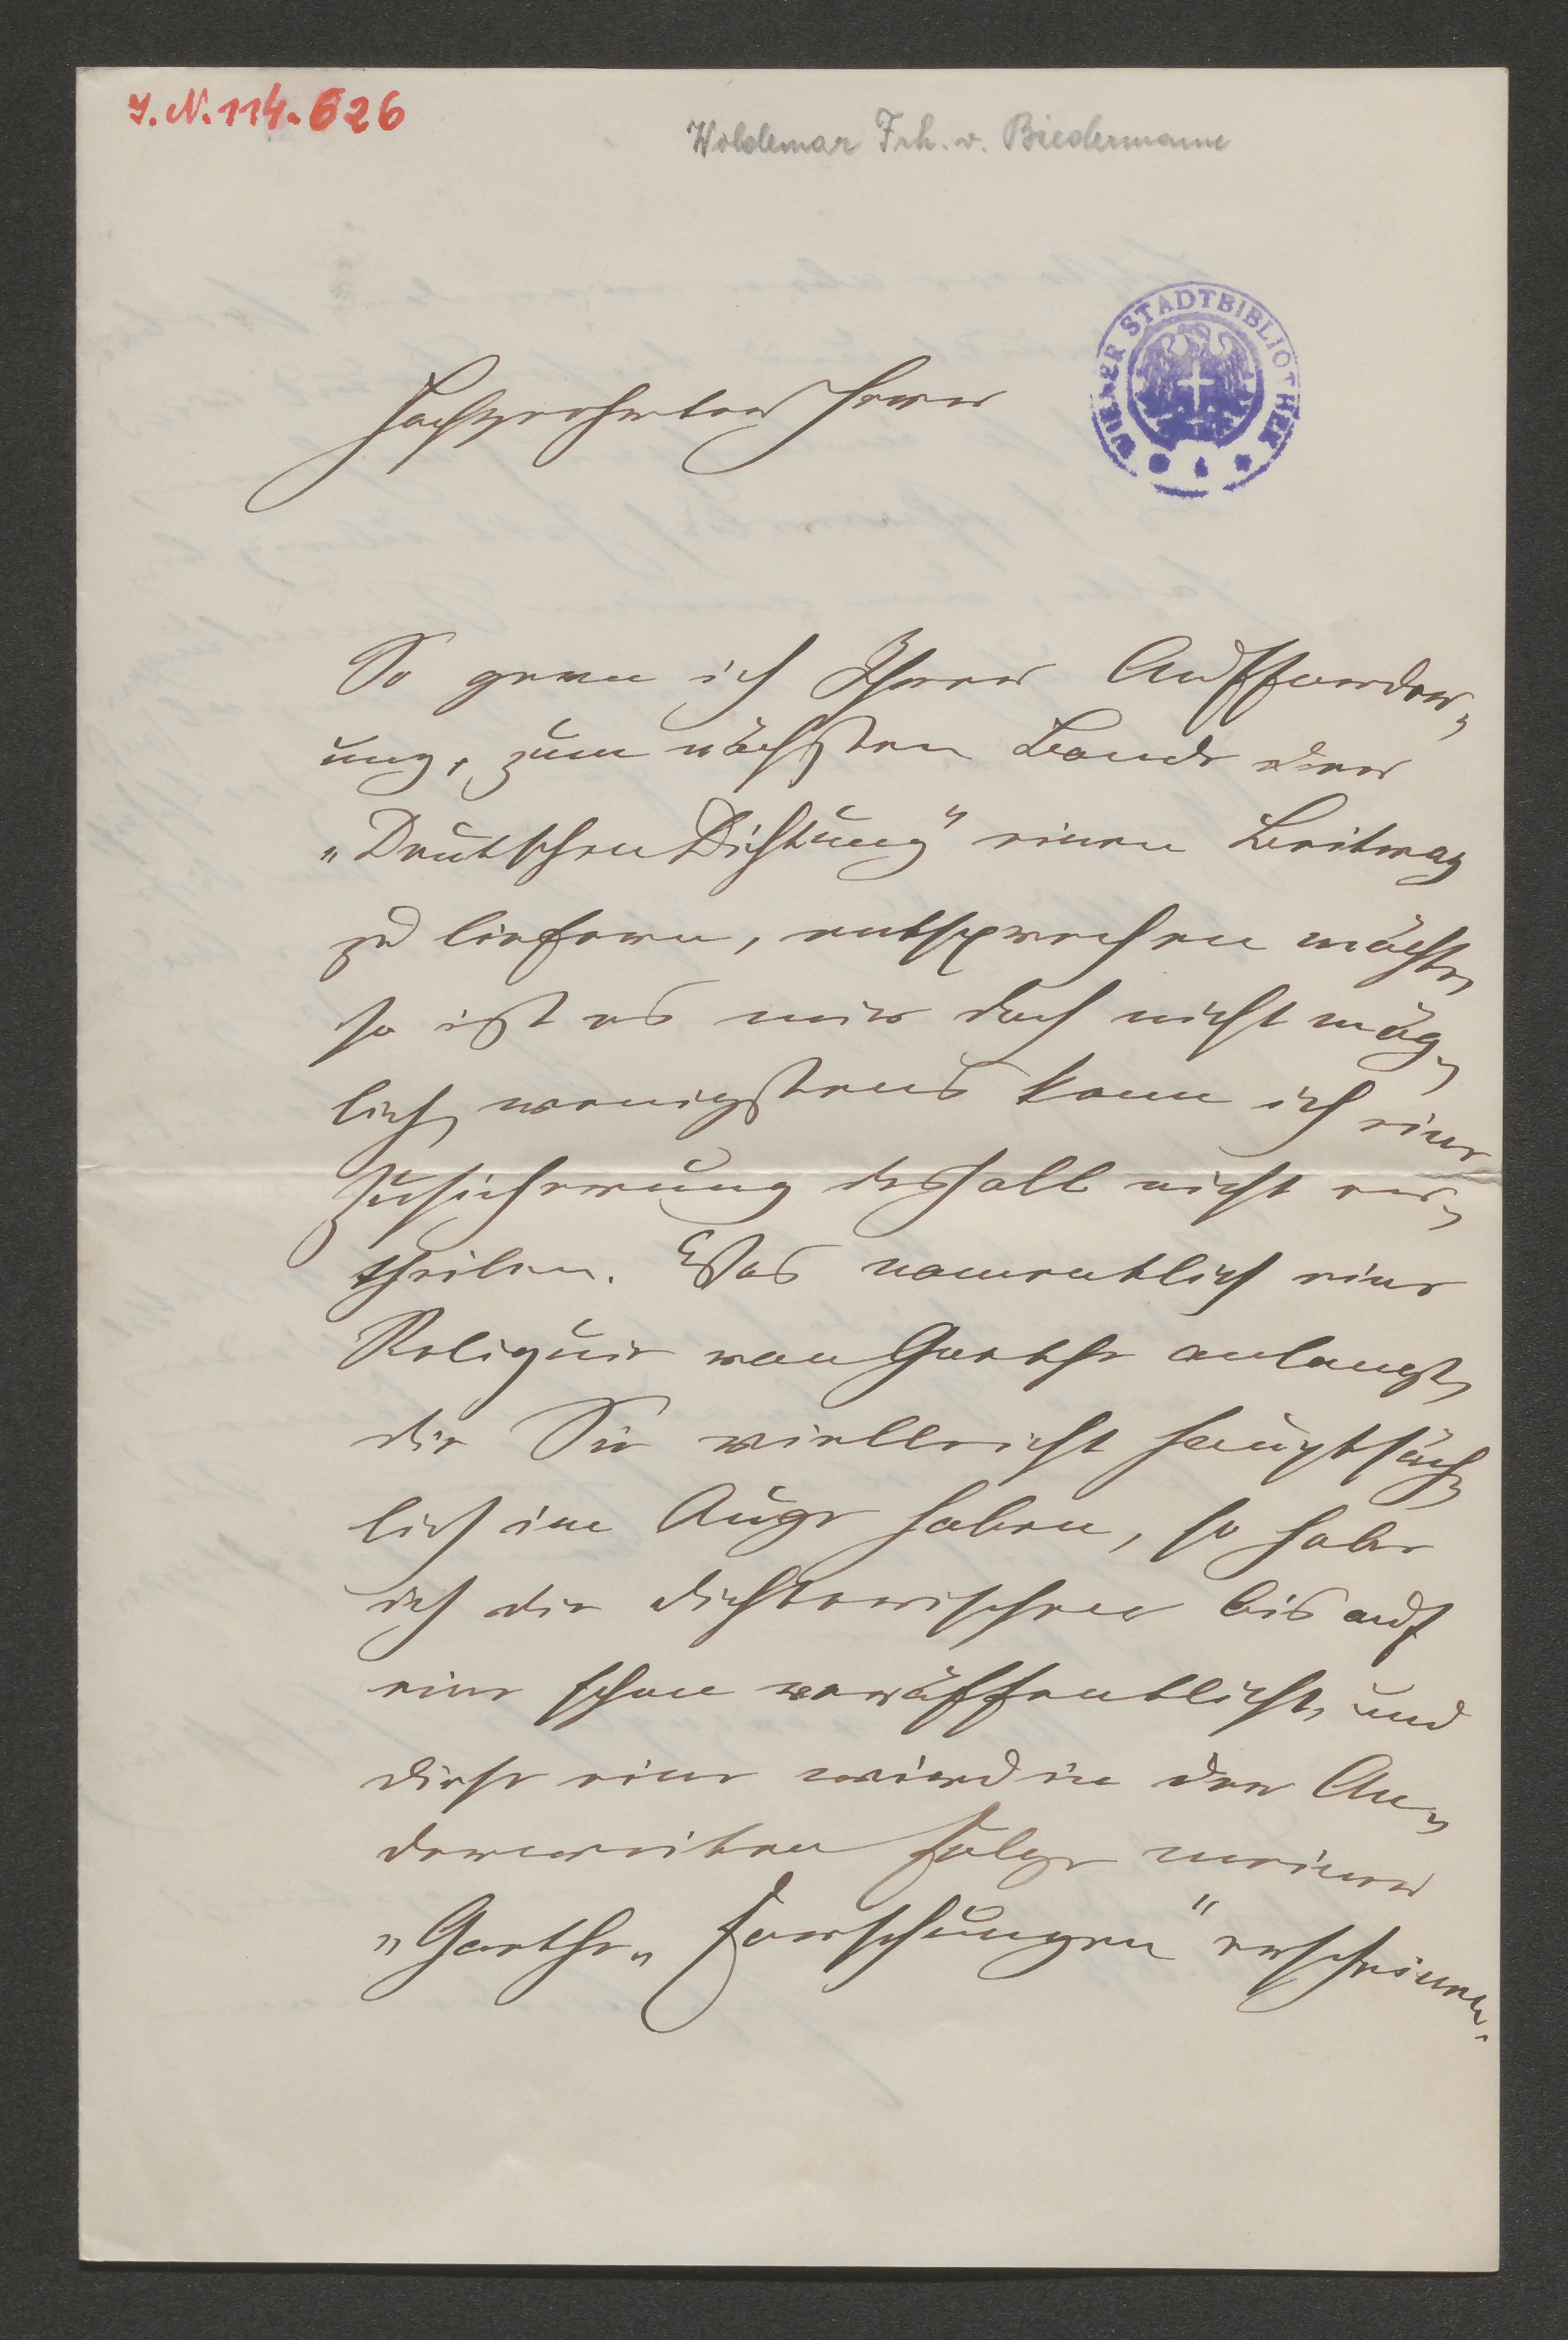 J.N. 114.626
Woldemar Frh. v. Biedermann
WIENER STADTBIBLIOTHEK
Hochgeehrter Herr
So gern ich Ihrer Aufforder-
ung, zum nächsten Bande der
„Deutschen Dichtung" einen Beitrag
zu liefern, entsprechen möchte,
so ist es mir doch nicht mög-
lich, wenigstens kann ich eine
Zusicherung deshalb nicht er-
theilen. Was namentlich eine
Reliquie von Goethe anlangt,
die Sie vielleicht hauptsäch-
lich im Auge haben, so habe
ich die dichterischen bis auf
eine schon veröffentlicht, und
diese eine wird in der An-
derweiten Folge meiner
„Goethe-Forschungen" erscheinen.